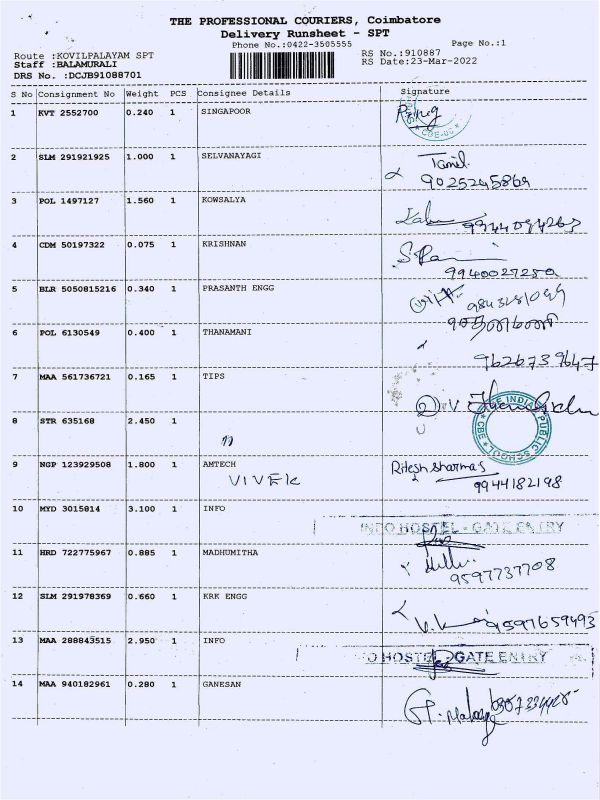 THE PROFESSIONAL COURIERS, Coimbatore
Delivery Runsheet - SPT
Phone No.:0422-3505555
Page No.:1
Route :KOVILPALAYAM SPT
RS No.:910887
Staff :BALAMURALI
RS Date:23-Mar-2022
DRS No. :DCJB91088701
S No Consignment No Weight PCS Consignee Details Signature
1 KVT 2552700 0.240 1 SINGAPOOR
CBE-06
2 SLM 291921925 1.000 1 SELVANAYAGI Tamil
9025245869
3 POL 1497127 1.560 1 KOWSALYA
4 CDM 50197322 0.075 1 KRISHNAN
9940027250
5 BLR 5050815216 0.340 1 PRASANTH ENGG
6 POL 6130549 0.400 1 THANAMANI
9626739647
7 MAA 561736721 0.165 1 TIPS
8 STR 635168 2.450 1 "
THE INDIAN PUBLIC SCHOOL CBE
9 NGP 123929508 1.800 1 AMTECH Ritesh sharma
VIVEK 9944182198
10 MYD 3015814 3.100 1 INFO
INFO HOSTEL - GATE ENTRY
11 HRD 722775967 0.885 1 MADHUMITHA
9597737708
12 SLM 291978369 0.660 1 KRK ENGG
9597659493
13 MAA 288843515 2.950 1 INFO
HOSTEL GATE ENTRY
14 MAA 940182961 0.280 1 GANESAN